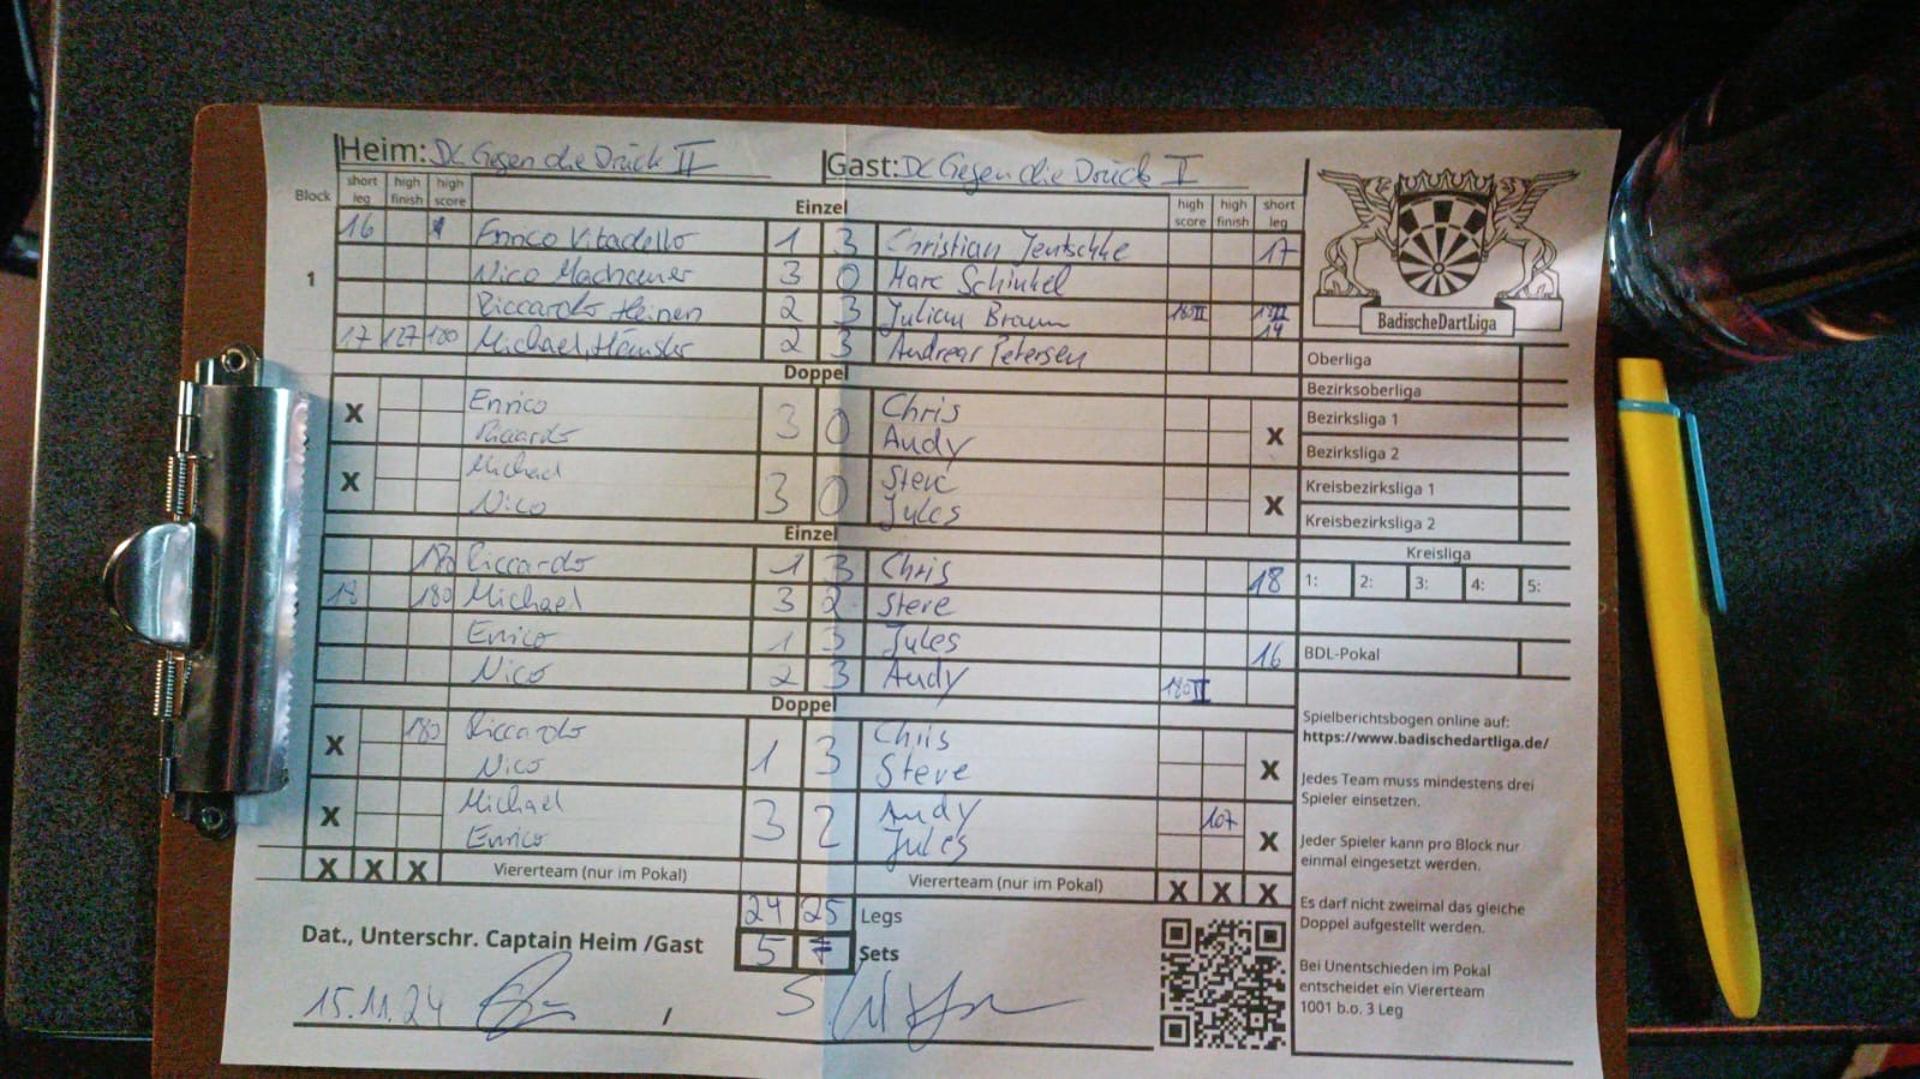 Heim: DC Gegen die Drück II
Gast: DC Gegen die Drück I
Block
short leg
high finish
high score
Einzel
high score
high finish
short leg
16 Enrico Vitadello 1 3 Christian Jentschke 17
1
Nico 3 0 Marc Schinkel
Riccardo Heinen 2 3 Julian Braun 180II
14
17 127 180 Michael 2 3 Andreas Petersen
Doppel
X Enrico 3 0 Chris X
Riccardo Andy
X Michael 3 0 Steve X
Nico Jules
Einzel
180 Riccardo 1 3 Chris 18
18 180 Michael 3 2 Steve
Enrico 1 3 Jules 16
Nico 2 3 Andy 180II
Doppel
X 180 Riccardo 1 3 Chris X
Nico Steve
X Michael 3 2 Andy 107 X
Enrico Jules
X X X Viererteam (nur im Pokal) Viererteam (nur im Pokal) X X X
24 25 Legs
Dat., Unterschr. Captain Heim /Gast 5 7 Sets
15.11.24 /
BadischeDartLiga
Oberliga
Bezirksoberliga
Bezirksliga 1
Bezirksliga 2
Kreisbezirksliga 1
Kreisbezirksliga 2
Kreisliga
1: 2: 3: 4: 5:
BDL-Pokal
Spielberichtsbogen online auf:
https://www.badischedartliga.de/
Jedes Team muss mindestens drei
Spieler einsetzen.
Jeder Spieler kann pro Block nur
einmal eingesetzt werden.
Es darf nicht zweimal das gleiche
Doppel aufgestellt werden.
Bei Unentschieden im Pokal
entscheidet ein Viererteam
1001 b.o. 3 Leg